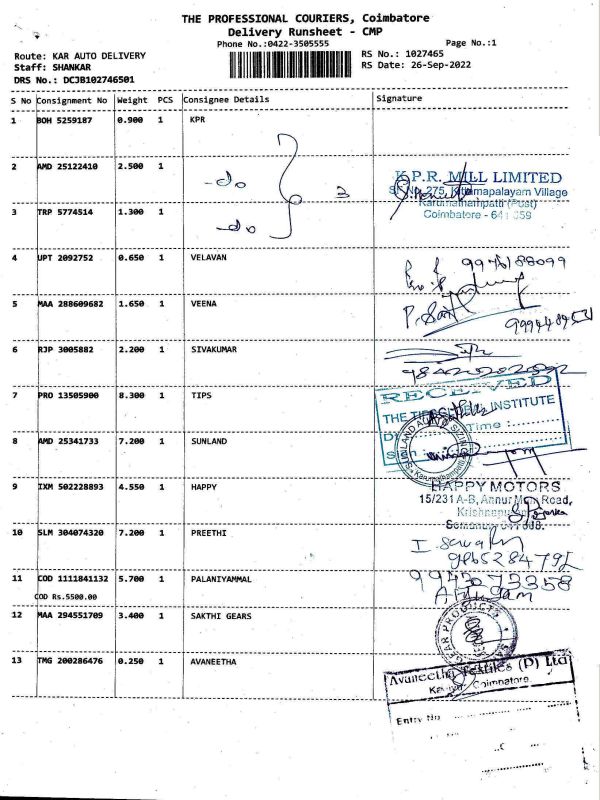 THE PROFESSIONAL COURIERS, Coimbatore
Delivery Runsheet - CMP
Phone No.:0422-3505555 Page No.:1
Route: KAR AUTO DELIVERY RS No.: 1027465
Staff: SHANKAR RS Date: 26-Sep-2022
DRS No.: DCJB102746501
S No Consignment No Weight PCS Consignee Details Signature
1 BOH 5259187 0.900 1 KPR
2 AMD 25122410 2.500 1 -do 3
K.P.R. MILL LIMITED
S.No. 275, Kittampalayam Village
Karumathampatti (Post)
Coimbatore - 641 659
3 TRP 5774514 1.300 1 -do
4 UPT 2092752 0.650 1 VELAVAN 9976188099
5 MAA 288609682 1.650 1 VEENA
6 RJP 3005882 2.200 1 SIVAKUMAR
7 PRO 13505900 8.300 1 TIPS
RECEIVED
INSTITUTE
Time :
8 AMD 25341733 7.200 1 SUNLAND
SUNLAND AUTO
9 IXM 502228893 4.550 1 HAPPY
HAPPY MOTORS
15/231 A-B, Annur Main Road,
10 SLM 304074320 7.200 1 PREETHI
11 COD 1111841132 5.700 1 PALANIYAMMAL 9943073358
COD Rs.5500.00
12 MAA 294551709 3.400 1 SAKTHI GEARS
GEAR PRODUCTS
13 TMG 200286476 0.250 1 AVANEETHA
Avaneetha Textiles (P) Ltd
Coimbatore
Entry No